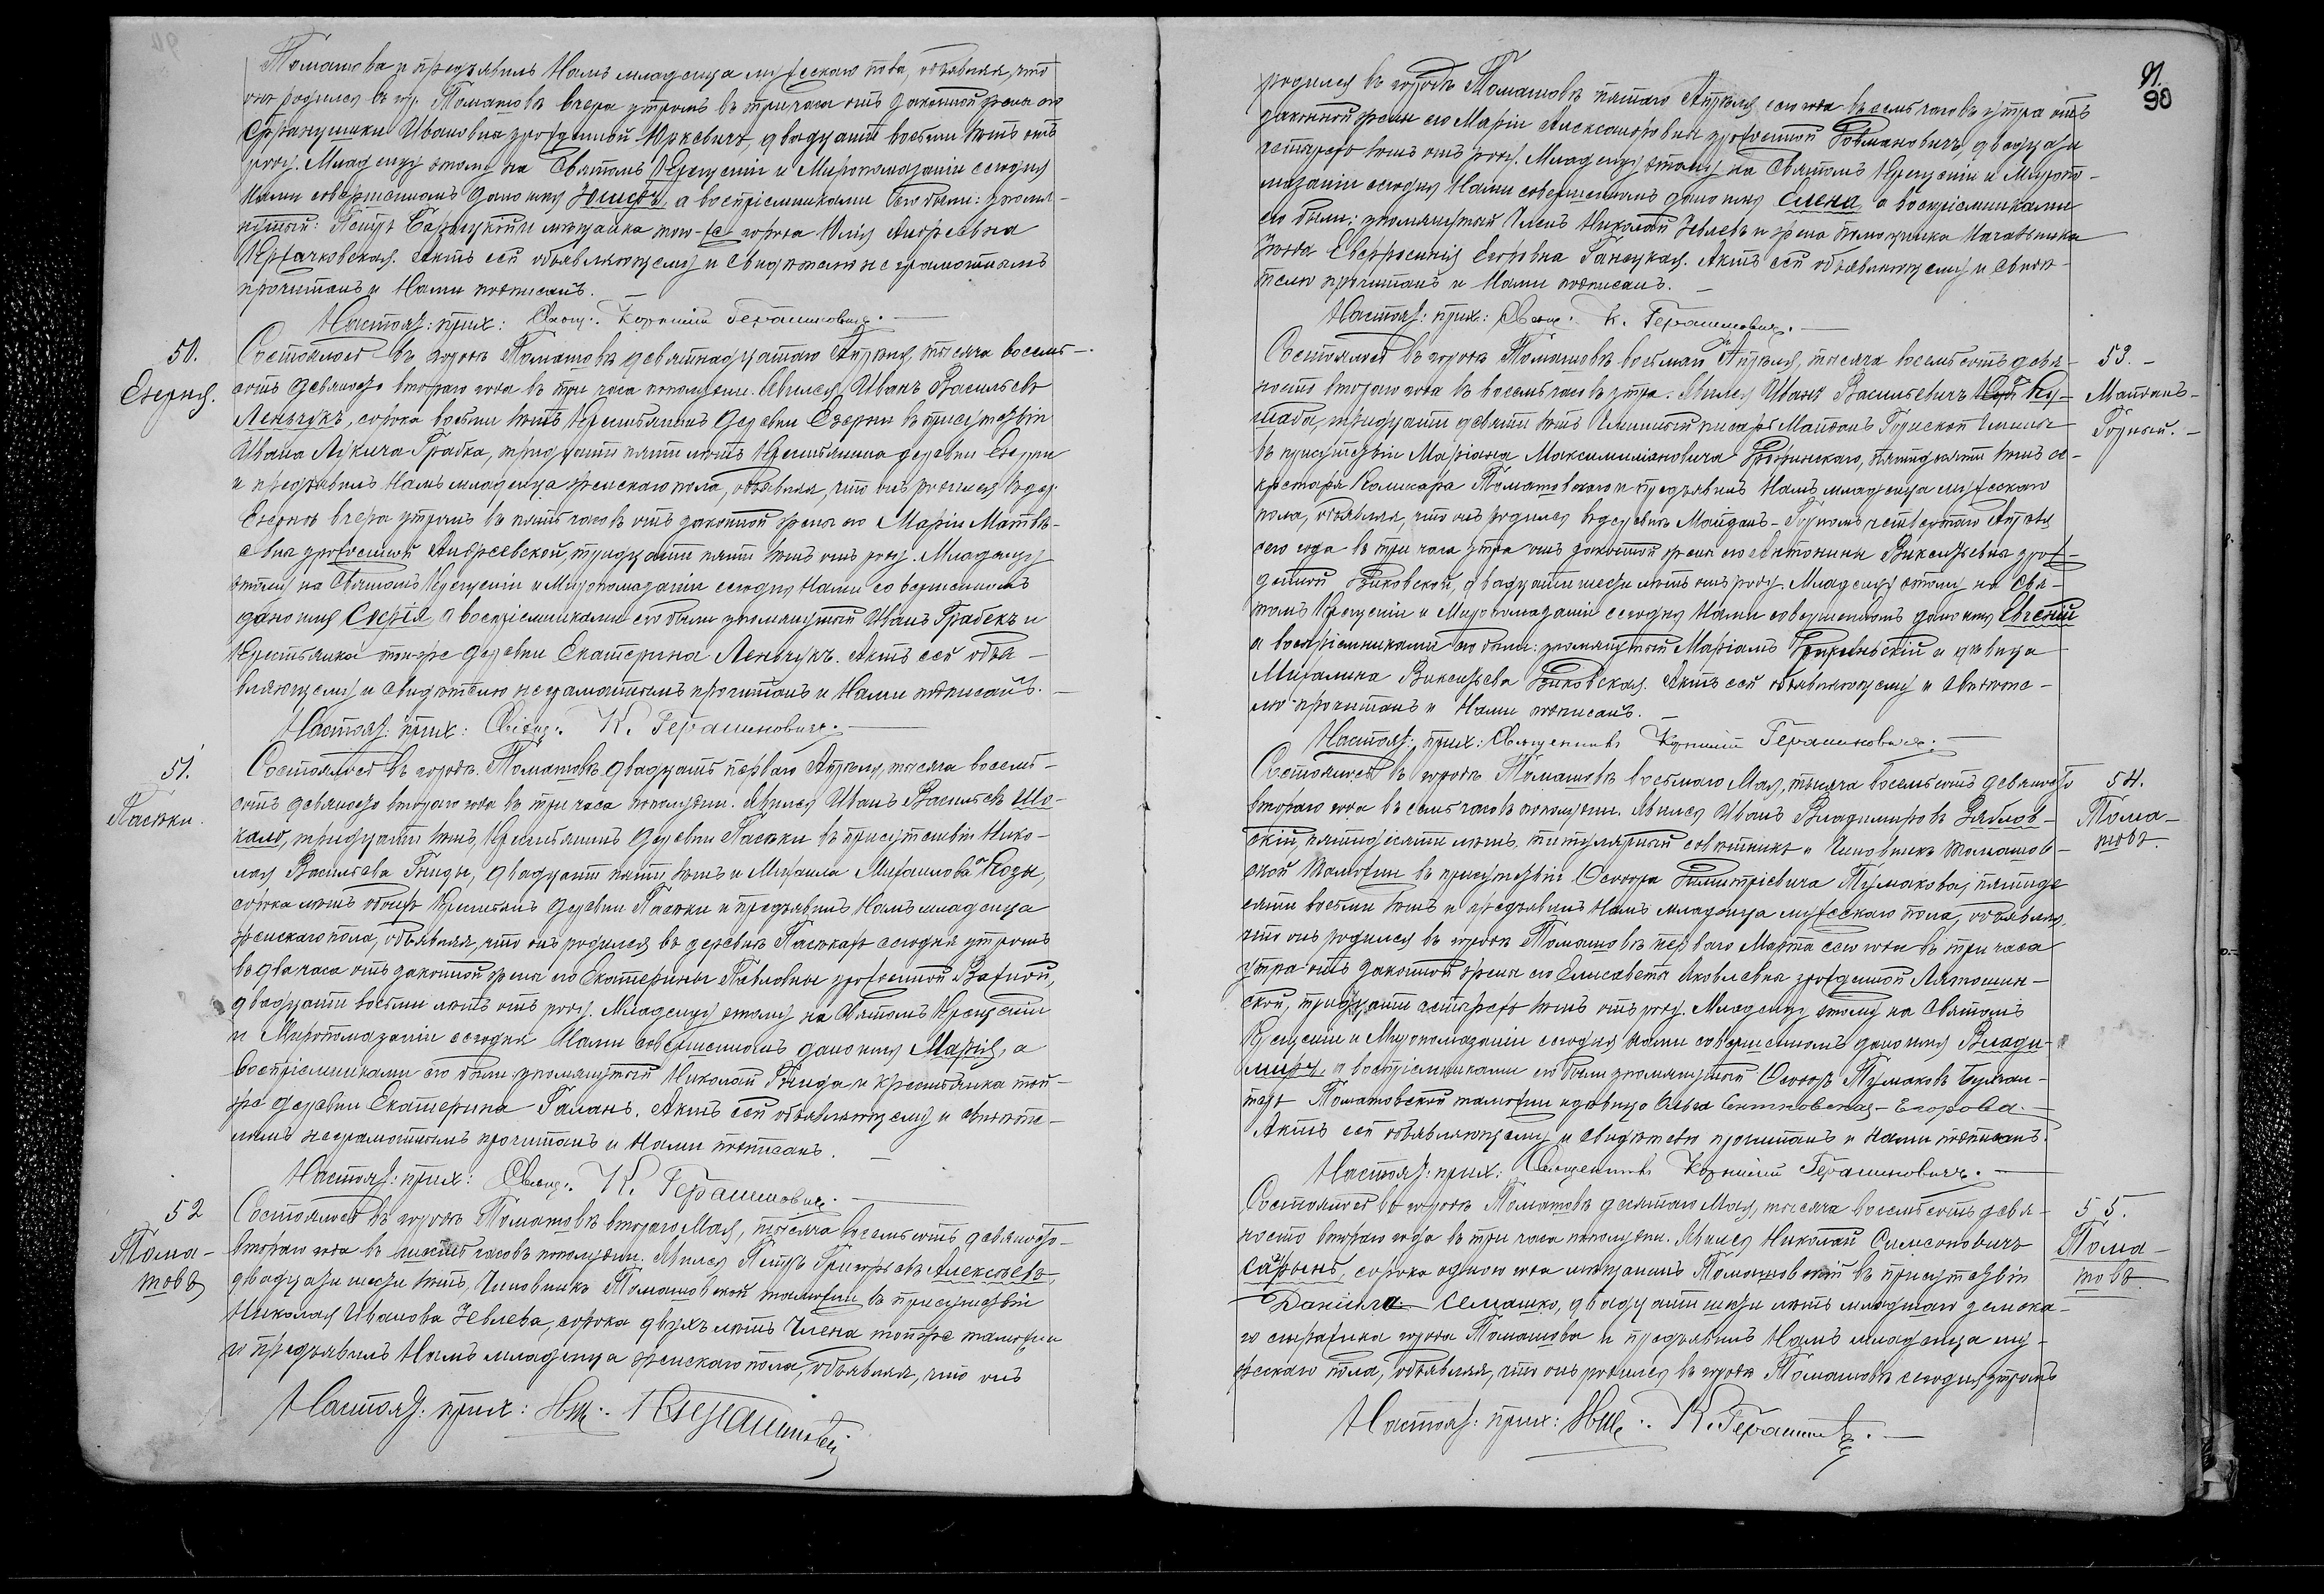 Томашова и предъявилъ Намъ младенца мужескаго пола, объявляя, что
онъ родился въ гор. Томашовѣ вчера утромъ въ три часа отъ законной жены его
Францишки Ивановны урожденной Юркевичъ, двадцати восьми лѣтъ отъ
роду. Младенцу этому на Святомъ Крещеніи и Мѵропомазаніи сегодня
Нами совершенномъ дано имя Іосифъ, а воспріемниками его были: упомя-
нутый: Петръ и мѣщанка того-же города Юлія Андреевна
. Актъ сей объявляющему и свидѣтелю неграмотнымъ
прочитанъ и Нами подписанъ. —
Настоят: прих: Свящ:. Корнилій Герашиновичъ. —
50.
Езерня.
Состоялось въ городѣ Томашовѣ девятнадцатаго Апрѣля, тысяча восемь-
сотъ девяносто втораго года въ три часа пополудни. Явился Иванъ Васильевъ
Леньчукъ, сорока восьми лѣтъ крестьянинъ деревни Езерни въ присутствіи
Ивана Грабка, тридцати пяти лѣтъ крестьянина деревни Езерни
и предъявилъ Намъ младенца женскаго пола, объявляя, что онъ родился въ дер.
Езернѣ вчера утромъ въ пять часовъ отъ законной жены его Маріи Матвѣ-
евны урожденной Андреевской, тридцати пяти лѣтъ отъ роду. Младенцу
этому на Святомъ Крещеніи и Мѵропомазаніи сегодня Нами совершенномъ
дано имя Софія, а воспріемниками его были упомянутый Иванъ Грабекъ и
крестьянка той-же деревни Екатерина Леньчукъ. Актъ сей объя-
вляющему и свидѣтелю неграмотнымъ прочитанъ и Нами подписанъ. —
Настоят: прих: Свящ:. К. Герашиновичъ. —
51.
Пасѣки.
Состоялось въ городѣ Томашовѣ двадцать перваго Апрѣля, тысяча восемь-
сотъ девяносто втораго года въ три часа пополудни. Явился Иванъ Васильевъ Шо-
кало, тридцати лѣтъ, крестьянинъ деревни Пасѣки въ присутствіи Нико-
лая Васильева Гниды, двадцати пяти лѣтъ и Михаила Михаилова Козы,
сорока лѣтъ обоихъ крестьянъ деревни Пасѣки и предъявилъ Намъ младенца
женскаго пола, объявляя, что онъ родился въ деревнѣ Пасѣкахъ сегодня утромъ
въ два часа отъ законной жены его Екатерины Павловны урожденной Важной,
двадцати восьми лѣтъ отъ роду. Младенцу этому на Святомъ Крещеніи
и Мѵропомазаніи сегодня Нами совершенномъ дано имя Марія, а
воспріемниками его были упомянутый Николай Гнида и крестьянка той-
же деревни Екатерина Галанъ. Актъ сей объявляющему и свидѣте-
лямъ неграмотнымъ прочитанъ и Нами подписанъ. —
Настоят: прих: Свящ:. К. Герашиновичъ. —
52
Тома-
шовъ
Состоялось въ городѣ Томашовѣ втораго Мая, тысяча восемьсотъ девяносто
втораго года въ шесть часовъ пополудни. Явился Петръ Григорьевъ Алексѣевъ,
двадцати шести лѣтъ, Чиновникъ Томашовской таможни въ присутствіи
Николая Иванова Іевлева, сорока двухъ лѣтъ Члена той-же таможни
и предъявилъ Намъ младенца женскаго пола, объявляя, что онъ
Настоят: прих: Свящ:. К. Герашиновичъ
91.
90
родился въ городѣ Томашовѣ пятаго Апрѣля сего года въ семь часовъ утра отъ
законной жены его Маріи Александровны урожденной, двадцати
четырехъ лѣтъ отъ роду. Младенцу этому на Святомъ Крещеніи и Мѵропо-
мазаніи сегодня Нами совершенномъ дано имя Елена, а воспріемниками
его были: упомянутый Членъ Николай Іевлевъ и жена помощника Начальника
Евфросинія Егоровна Ганецкая. Актъ сей объявляющему и свидѣ-
телю прочитанъ и Нами подписанъ. —
Настоят: прих: Свящ:. К. Герашиновичъ. —
53. —
Майданъ-
Горный. —
Состоялось въ городѣ Томашовѣ восьмаго Апрѣля, тысяча восемьсотъ девя-
носто втораго года въ восемь часовъ утра. Явился Иванъ Васильевичъ Ку-
шаба, тридцати девяти лѣтъ Гминный писарь Майданъ Горнской Гмины
въ присутствіи Маріана Максимиліановича, пятидесяти лѣтъ се-
кретаря Томашовскаго и предъявилъ Намъ младенца мужескаго
пола, объявляя, что онъ родился въ деревнѣ Майданъ-Горномъ четвертаго Апрѣля
сего года въ три часа утра отъ законной жены его Антонины Викентьевны урож-
денной Быковской, двадцати шести лѣтъ отъ роду. Младенцу этому на Свя-
томъ Крещеніи и Мѵропомазаніи сегодня Нами совершенномъ дано имя Евгеній
а воспріемниками его были: упомянутый Маріанъ и дѣвица
Михалина Викентьева Быковская. Актъ сей объявляющему и свидѣте-
лю прочитанъ и Нами подписанъ. —
Настоят: прих: Священникъ Корнилій Герашиновичъ. —
54.
Тома-
шовъ.
Состоялось въ городѣ Томашовѣ восьмаго Мая, тысяча восемьсотъ девяносто
втораго года въ семь часовъ пополудни. Явился Иванъ Владимировъ Зяблов-
скій, пятидесяти лѣтъ, титулярный совѣтникъ и Чиновникъ Томашов-
ской Таможни въ присутствіи Ѳеодора Димитріевича Тумакова, пятиде-
сяти восьми лѣтъ и предъявилъ Намъ младенца мужескаго пола, объявляя,
что онъ родился въ городѣ Томашовѣ перваго Марта сего года въ три часа
утра отъ законной жены его Елисаветы Яковлевны урожденной Лятошин-
ской, тридцати четырехъ лѣтъ отъ роду. Младенцу этому на Святомъ
Крещеніи и Мѵропомазаніи сегодня Нами совершенномъ дано имя Влади-
миръ, а воспріемниками его были упомянутый Ѳеодоръ Тумаковъ Бухгал-
теръ Томашовской таможни и дѣвица Ольга Сентковская-Егорова. —
Актъ сей объявляющему и свидѣтелю прочитанъ и Нами подписанъ.
Настоят: прих: Священникъ Корнилій Герашиновичъ. —
55.
Тома-
шовъ
Состоялось въ городѣ Томашовѣ десятаго Мая, тысяча восемьсотъ девя-
носто втораго года въ три часа пополудни. Явился Николай Симеоновичъ
Сарынъ, сорока одного года мѣщанинъ Томашовскій въ присутствіи
Даніила Семашко, двадцати шести лѣтъ младшаго земска-
го стражника города Томашова и предъявилъ Намъ младенца му-
жескаго пола, объявляя, что онъ родился въ городѣ Томашовѣ сегодня утромъ
Настоят: прих: Свящ:. К. Герашиновичъ. —